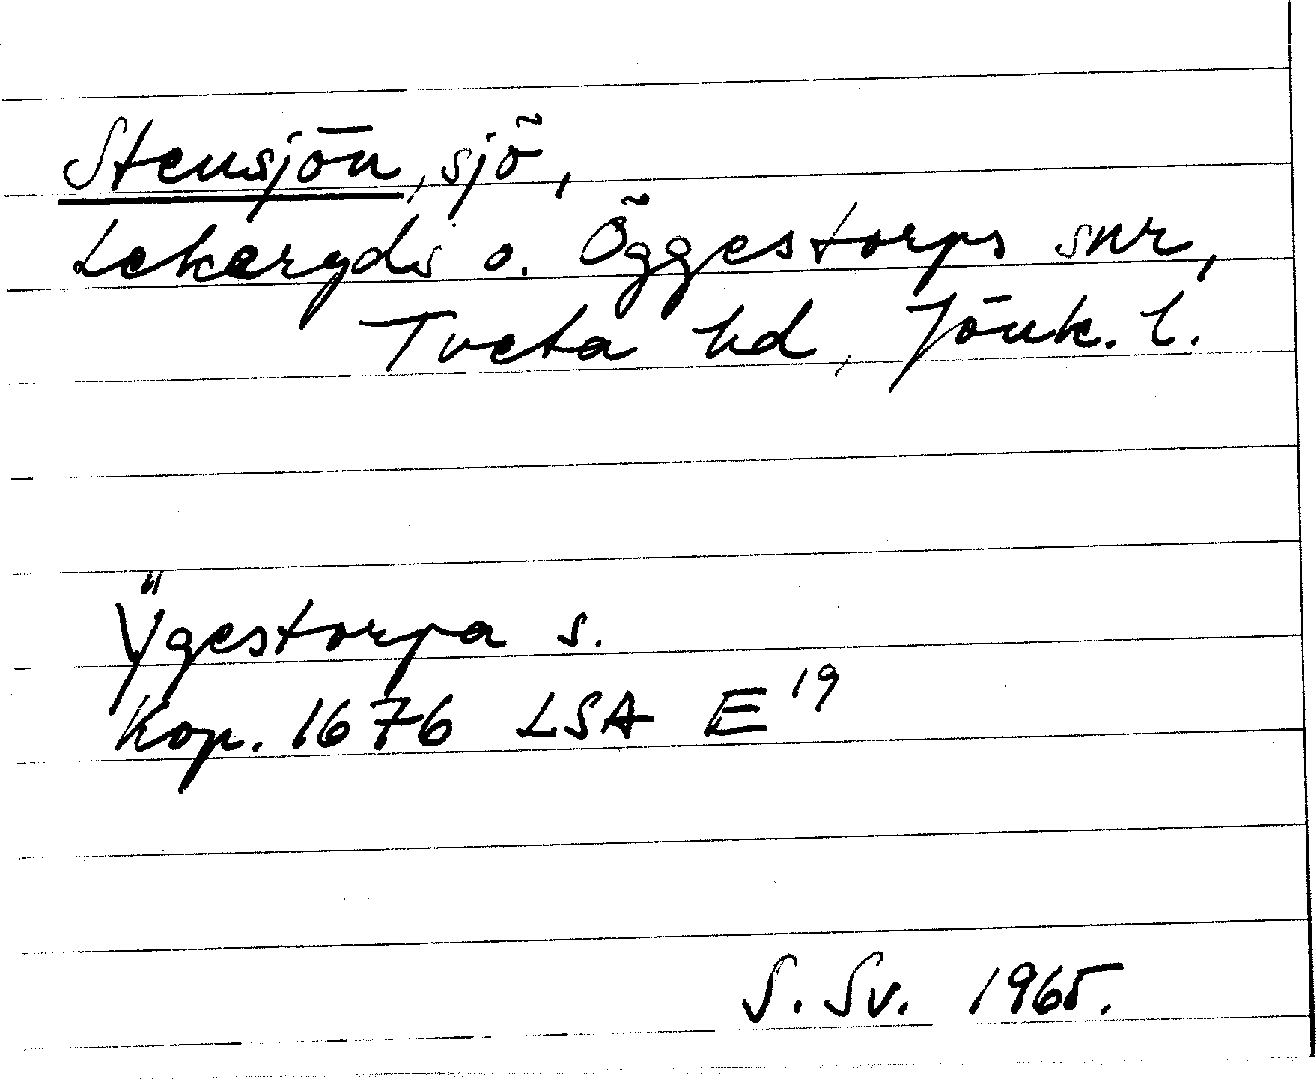 Stensjön, sjö,
Lekeryds o. Öggestorps snr,
Tveta hd, Jönk. l.
Ÿgestorpa s.
Kop. 1676 LSA E19
S. Sv. 1965.